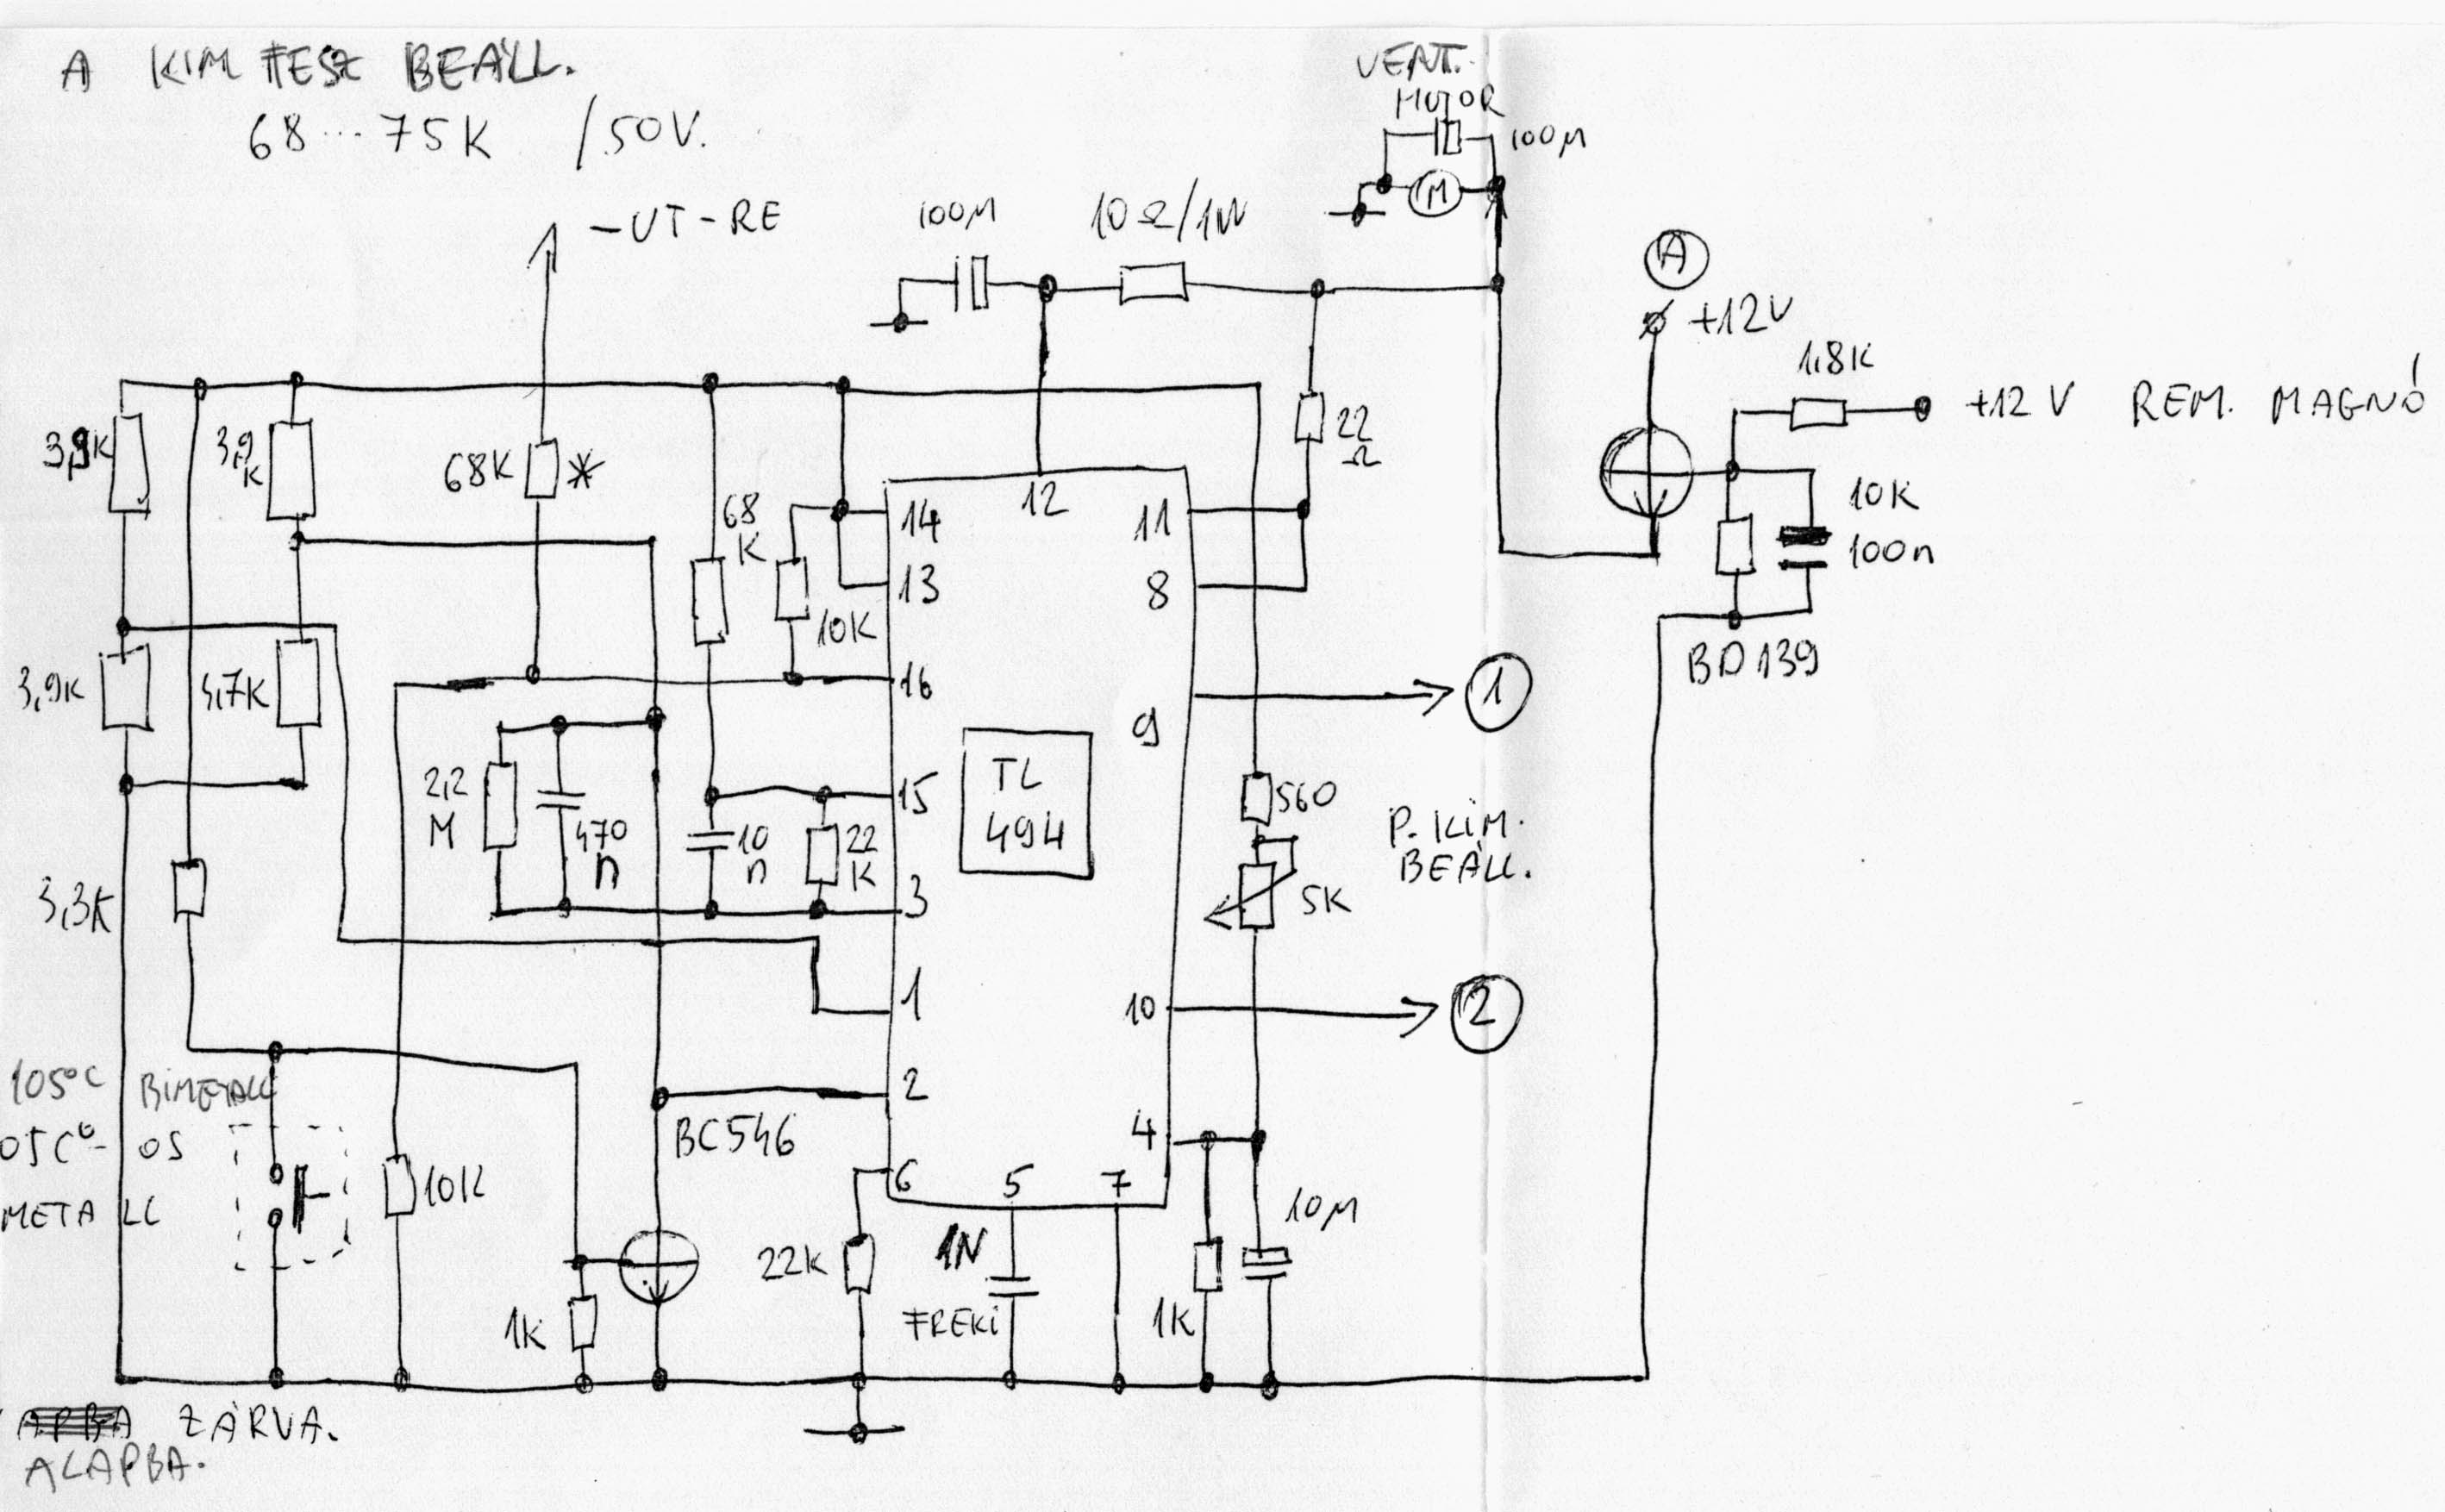 A KIM FESZ BEÁLL.
68...75K /50V.
-UT-RE
100M
10Ω/1W
VENT.
MOTOR
100M
M
A
+12V
1,8K
+12V REM. MAGNÓ
3,9K
3,9
K
68K *
68
K
10K
14
13
16
15
3
1
2
6
12
11
8
9
10
4
5
7
TL
494
22
Ω
10K
100n
BD139
1
2
3,9K
4,7K
2,2
M
470
n
10
n
22
K
560
5K
P. KIM.
BEÁLL.
3,3K
105°C BIMETALL
05C°- OS
METALL
10K
BC546
1K
22K
1N
FREKI
1K
10M
ZÁRVA.
ALAPBA.